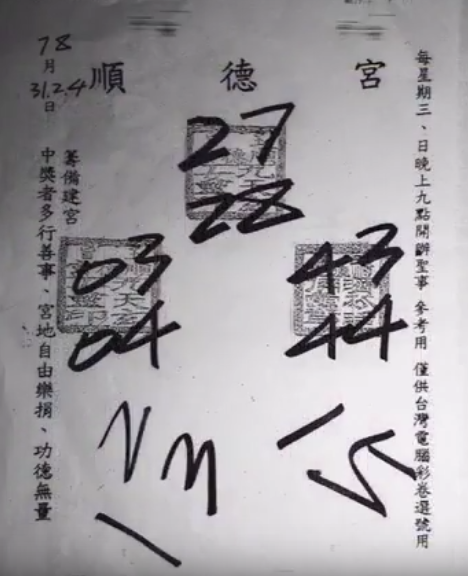 順德宮
每星期三、日晚上九點開辦聖事 參考用 僅供台灣電腦彩卷選號用
27
28
03
04
43
44
籌備建宮
中獎者多行善事、宮地自由樂捐、功德無量
78
月
31.2.4
日